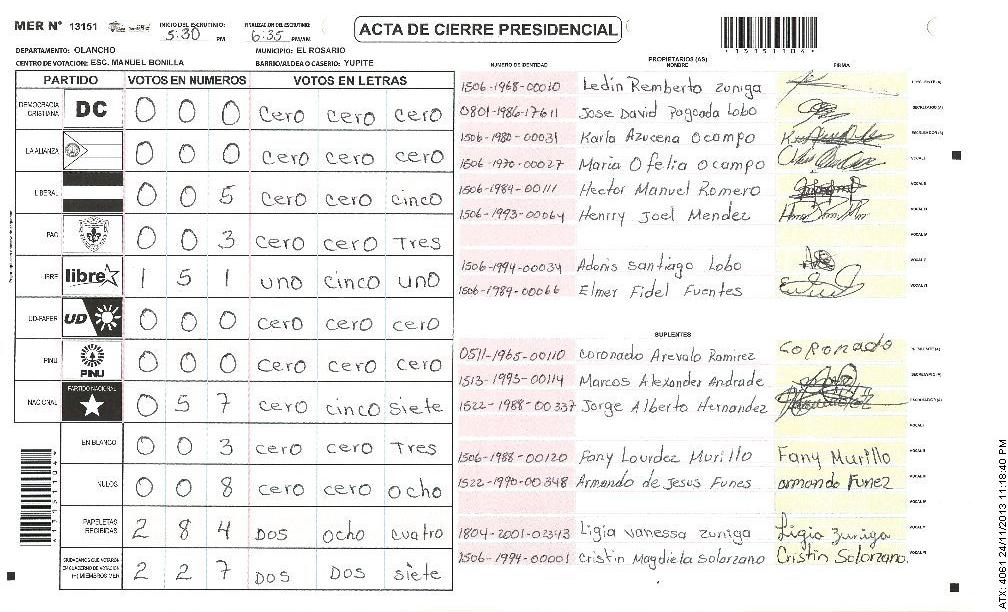 MER N° 13151 INICIO DEL ESCRUTINIO: 5:30 PM FINALIZACION DEL ESCRUTINIO: 6:35 PM/AM
ACTA DE CIERRE PRESIDENCIAL
DEPARTAMENTO: OLANCHO MUNICIPIO: EL ROSARIO
CENTRO DE VOTACION: ESC. MANUEL BONILLA BARRIO/ALDEA O CASERIO: YUPITE
PARTIDO VOTOS EN NUMEROS VOTOS EN LETRAS
DEMOCRACIA CRISTIANA DC 0 0 0 cero cero cero
LA ALIANZA 0 0 0 cero cero cero
LIBERAL 0 0 5 cero cero cinco
PAC 0 0 3 cero cero Tres
LIBRE libre 1 5 1 uno cinco uno
UD-FAPER UD 0 0 0 cero cero cero
PINU PINU 0 0 0 cero cero cero
NACIONAL PARTIDO NACIONAL 0 5 7 cero cinco siete
EN BLANCO 0 0 3 cero cero Tres
NULOS 0 0 8 cero cero ocho
PAPELETAS RECIBIDAS 2 8 4 DOS ocho cuatro
CIUDADANOS QUE VOTARON EN CUADERNO DE VOTACION (+) MIEMBROS MER 2 2 7 DOS DOS siete
PROPIETARIOS (AS)
NUMERO DE IDENTIDAD NOMBRE FIRMA
1506-1968-00010 Ledin Remberto Zuniga
0801-1986-17611 Jose David Pagoada Lobo SECRETARIO (A)
1506-1980-00031 Karla Azucena Ocampo ESCRUTADOR (A)
1506-1970-00027 Maria Ofelia Ocampo VOCAL I
1506-1984-00111 Hector Manuel Romero VOCAL II
1506-1993-00064 Henrry Joel Mendez VOCAL III
VOCAL IV
1506-1994-00034 Adonis Santiago Lobo VOCAL V
1506-1989-00066 Elmer Fidel Fuentes VOCAL VI
SUPLENTES
0511-1965-00110 Coronado Arevalo Ramirez Coronado
1513-1995-00114 Marcos Alexander Andrade SECRETARIO (A)
1522-1988-00337 Jorge Alberto Hernandez ESCRUTADOR (A)
VOCAL I
1506-1988-00120 Fany Lourdez Murillo Fany Murillo VOCAL II
1522-1990-00348 Armando de Jesus Funes armando Funez VOCAL III
VOCAL IV
1804-2001-02343 Ligia Vanessa Zuniga Ligia Zuniga VOCAL V
1506-1994-00001 Cristin Magdiela Solorzano Cristin Solorzano. VOCAL VI
ATX: 4061 24/11/2013 11:18:40 PM